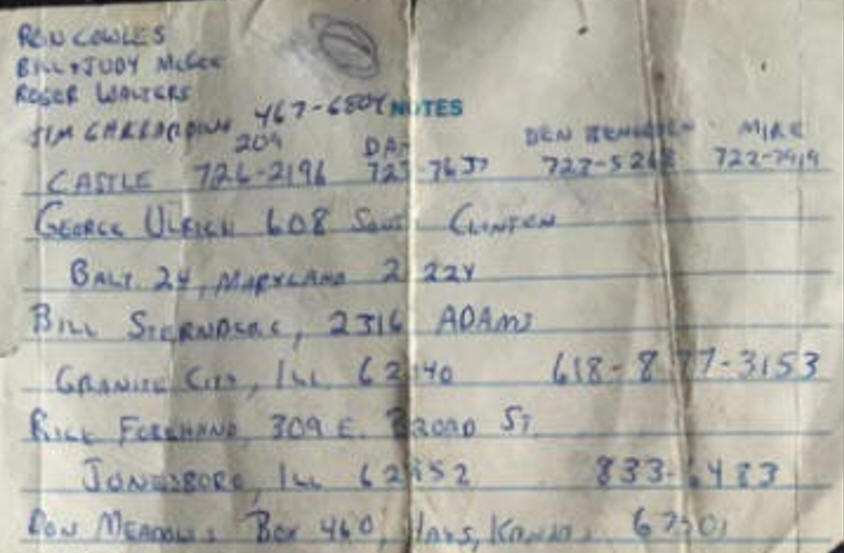 RON COWLES
BILL & JUDY McGEE
ROGER WALTERS
JIM 467-6804 NOTES
209 DAN DEN MIKE
CASTLE 726-2196 727-5268 722-7919
GEORGE ULRICH 608 SOUTH CLINTON
BALT. 24, MARYLAND 21224
BILL 2316 ADAMS
GRANITE CITY, ILL 62040 618-877-3153
BILL FOREHAND, 309 E. BROAD ST.
JONESBORO, ILL 62952 833-6483
RON MEADOWS BOX 460, HAYS, KANSAS 67601